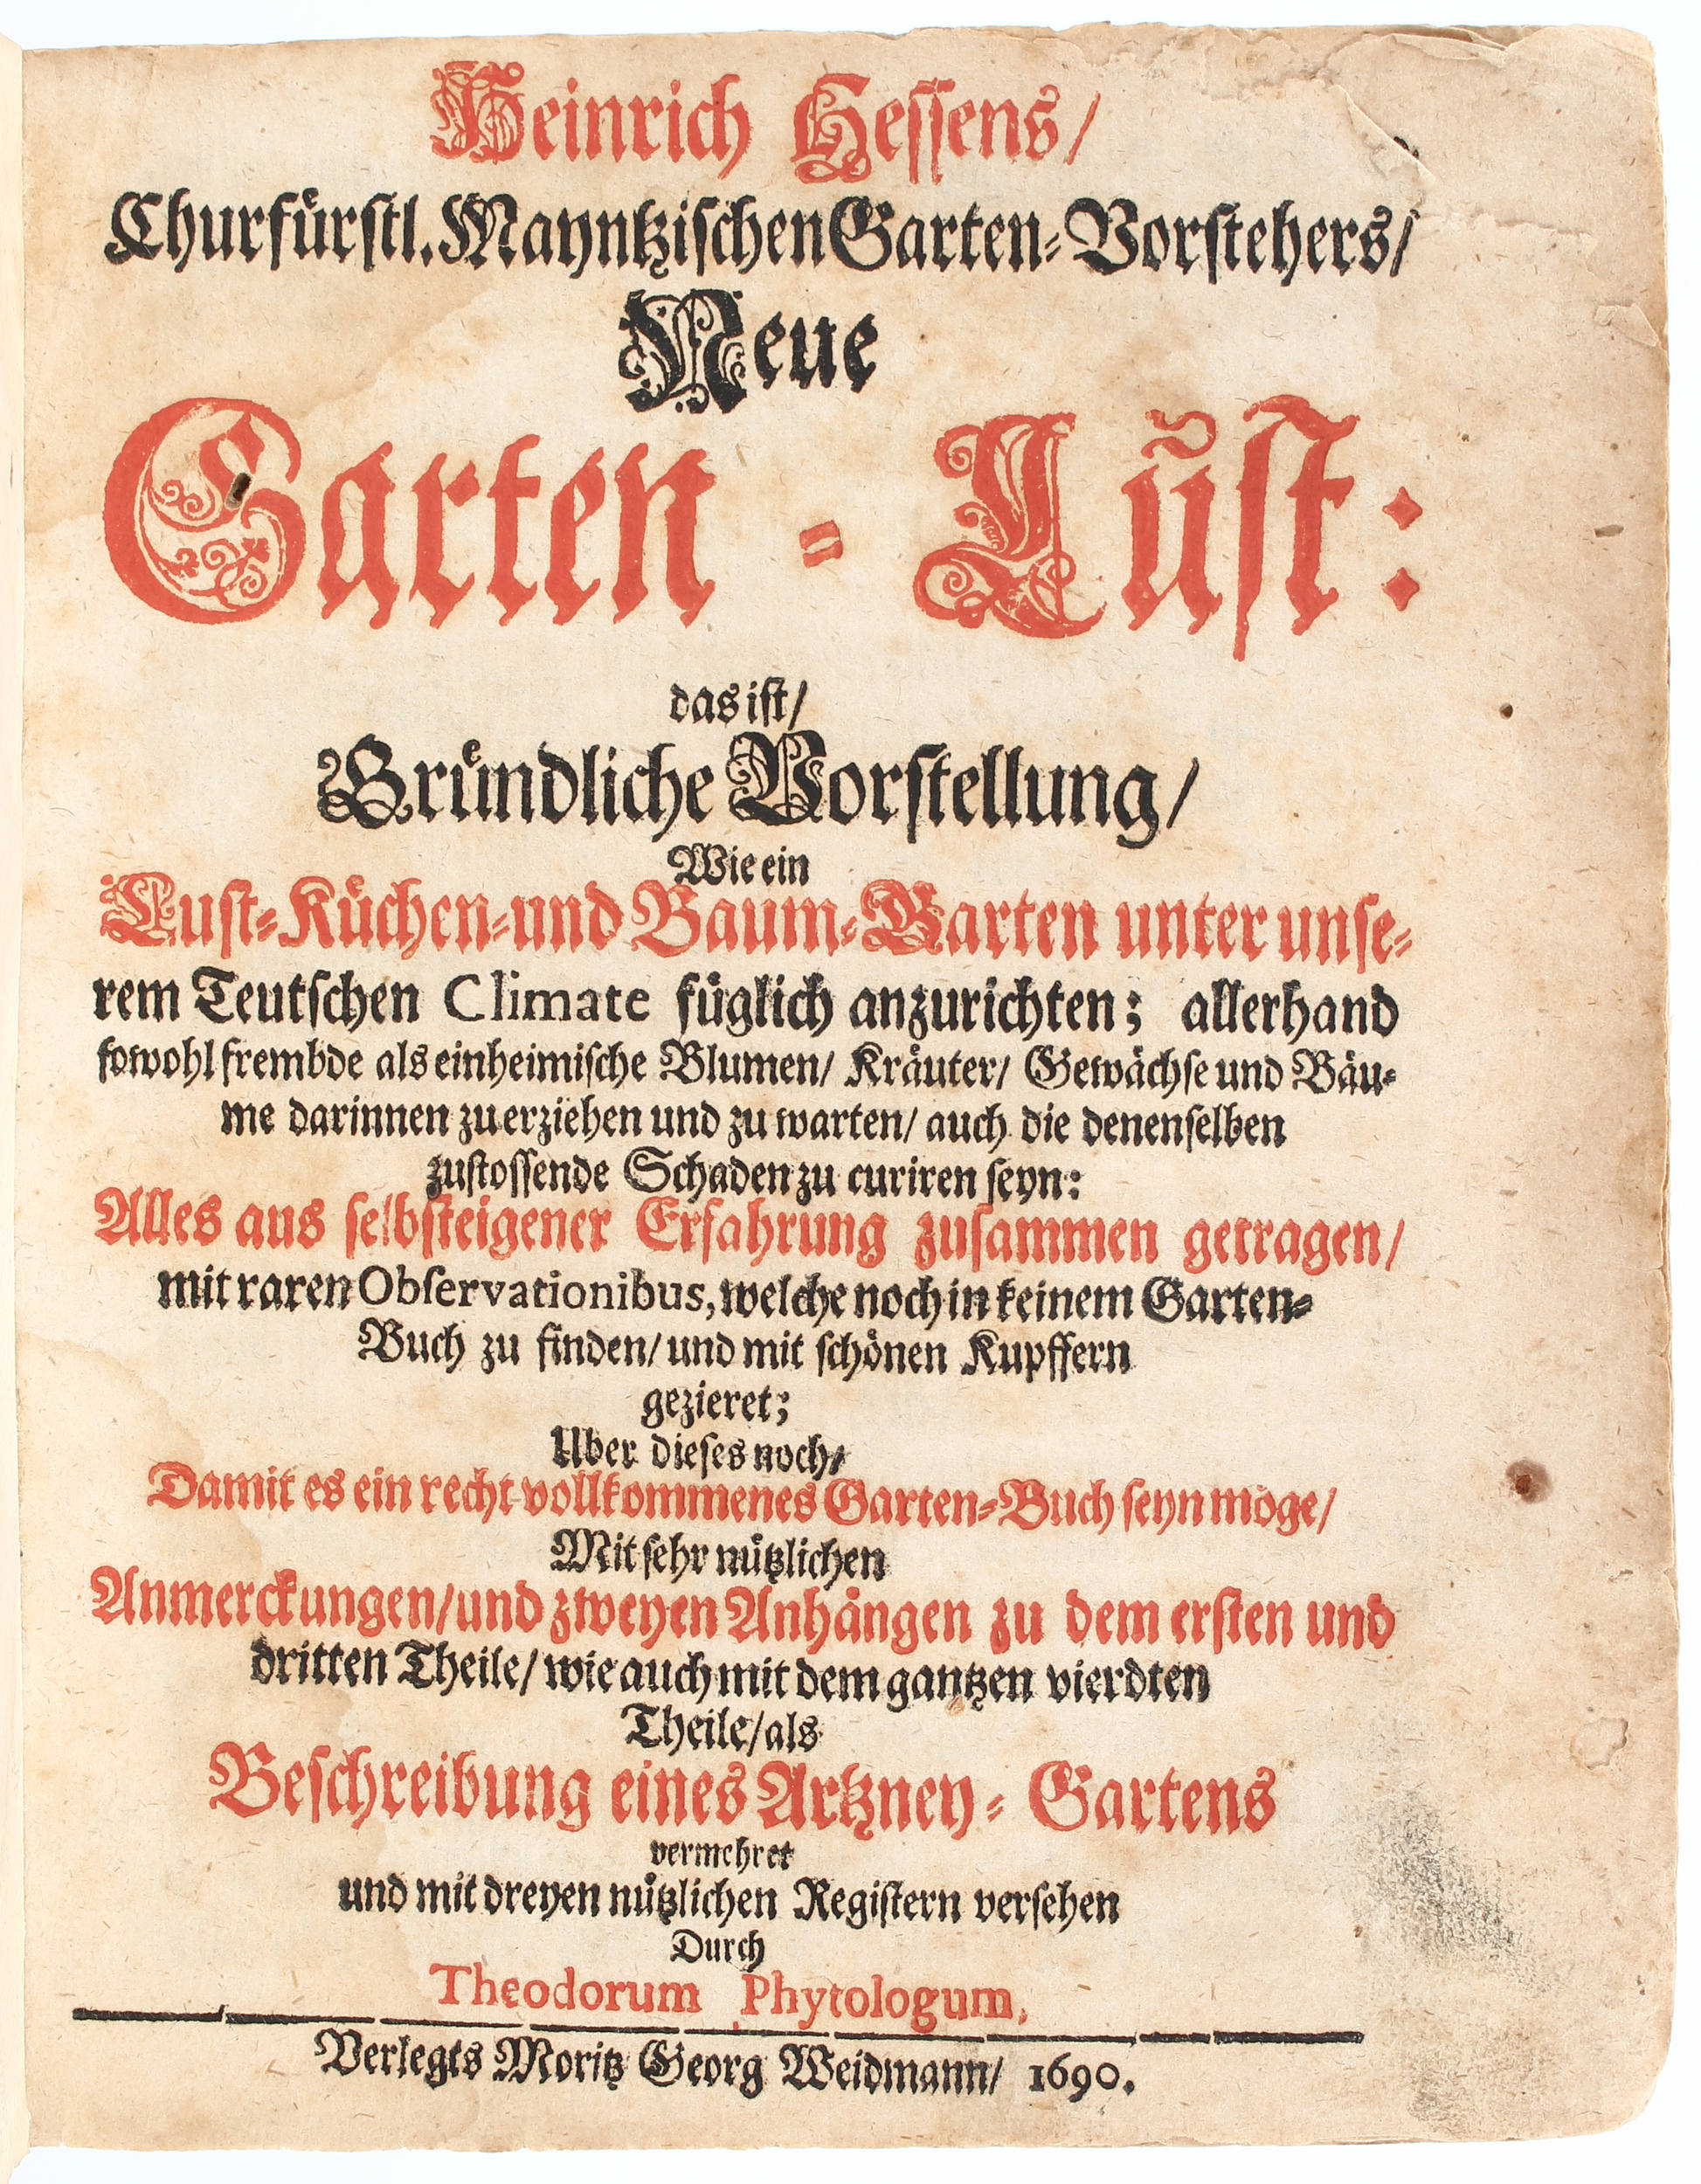 Heinrich Hessens/
Churfürstl. Mayntzischen Garten-Vorstehers/
Neue
Garten-Lust:
das ist/
Gründliche Vorstellung/
Wie ein
Lust-Küchen-und Baum-Garten unter unse-
rem Teutschen Climate füglich anzurichten; allerhand
sowohl frembde als einheimische Blumen/ Kräuter/ Gewächse und Bäu-
me darinnen zu erziehen und zu warten/ auch die denenselben
zustossende Schaden zu curiren seyn:
Alles aus selbsteigener Erfahrung zusammen getragen/
mit raren Observationibus, welche noch in keinem Garten-
Buch zu finden/ und mit schönen Kupffern
gezieret;
Uber dieses noch/
Damit es ein recht vollkommenes Garten-Buch seyn möge/
Mit sehr nützlichen
Anmerckungen/ und zweyen Anhängen zu dem ersten und
dritten Theile/ wie auch mit dem gantzen vierdten
Theile/ als
Beschreibung eines Artzney-Gartens
vermehret
und mit dreyen nützlichen Registern versehen
Durch
Theodorum Phytologum,
Verlegts Moritz Georg Weidmann/ 1690.